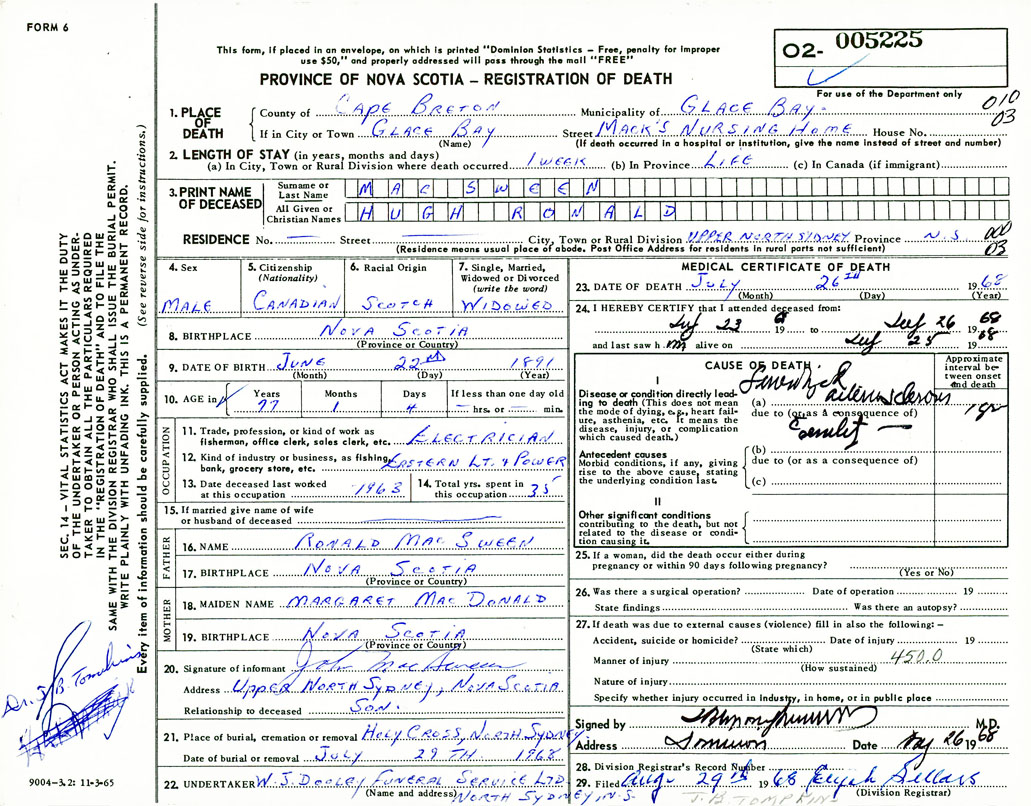 FORM 6
This form, if placed in an envelope, on which is printed "Dominion Statistics – Free, penalty for improper
use $50," and properly addressed will pass through the mail "FREE"
PROVINCE OF NOVA SCOTIA – REGISTRATION OF DEATH
02- 005225
For use of the Department only
010
03
1. PLACE OF DEATH
County of CAPE BRETON Municipality of GLACE BAY
If in City or Town GLACE BAY Street MACK'S NURSING HOME House No.
(Name) (If death occurred in a hospital or institution, give the name instead of street and number)
2. LENGTH OF STAY (in years, months and days)
(a) In City, Town or Rural Division where death occurred 1 WEEK (b) In Province LIFE (c) In Canada (if immigrant)
3. PRINT NAME OF DECEASED
Surname or Last Name MACSWEEN
All Given or Christian Names HUGH RONALD
RESIDENCE No. — Street — City, Town or Rural Division UPPER NORTH SYDNEY Province N.S.
(Residence means usual place of abode. Post Office Address for residents in rural parts not sufficient)
000
03
4. Sex
MALE
5. Citizenship
(Nationality)
CANADIAN
6. Racial Origin
SCOTCH
7. Single, Married,
Widowed or Divorced
(write the word)
WIDOWED
8. BIRTHPLACE NOVA SCOTIA
(Province or Country)
9. DATE OF BIRTH JUNE 22nd 1891
(Month) (Day) (Year)
10. AGE in
Years 77
Months 1
Days 4
If less than one day old
— hrs. or — min.
OCCUPATION
11. Trade, profession, or kind of work as
fisherman, office clerk, sales clerk, etc. ELECTRICIAN
12. Kind of industry or business, as fishing,
bank, grocery store, etc. EASTERN LT. & POWER
13. Date deceased last worked
at this occupation 1963
14. Total yrs. spent in
this occupation 35
15. If married give name of wife
or husband of deceased
FATHER
16. NAME RONALD MACSWEEN
17. BIRTHPLACE NOVA SCOTIA
(Province or Country)
MOTHER
18. MAIDEN NAME MARGARET MACDONALD
19. BIRTHPLACE NOVA SCOTIA
(Province or Country)
20. Signature of informant John MacSween
Address UPPER NORTH SYDNEY, NOVA SCOTIA
Relationship to deceased SON.
21. Place of burial, cremation or removal HOLY CROSS, NORTH SYDNEY
Date of burial or removal JULY 29TH 1968
22. UNDERTAKER W. J. DOOLEY FUNERAL SERVICE LTD.
(Name and address) NORTH SYDNEY, N.S.
MEDICAL CERTIFICATE OF DEATH
23. DATE OF DEATH JULY 26TH 1968
(Month) (Day) (Year)
24. I HEREBY CERTIFY that I attended deceased from:
23 19 to 26 1968
and last saw h im alive on 25 1968
CAUSE OF DEATH
Approximate interval between onset and death
I
Disease or condition directly leading to death (This does not mean the mode of dying, e.g., heart failure, asthenia, etc. It means the disease, injury, or complication which caused death.)
(a)
due to (or as a consequence of)
Antecedent causes
Morbid conditions, if any, giving rise to the above cause, stating the underlying condition last.
(b)
due to (or as a consequence of)
(c)
II
Other significant conditions
contributing to the death, but not related to the disease or condition causing it.
25. If a woman, did the death occur either during
pregnancy or within 90 days following pregnancy?
(Yes or No)
26. Was there a surgical operation? Date of operation 19
State findings Was there an autopsy?
27. If death was due to external causes (violence) fill in also the following: –
Accident, suicide or homicide? Date of injury 19
(State which)
Manner of injury 450.0
(How sustained)
Nature of injury
Specify whether injury occurred in industry, in home, or in public place
Signed by M.D.
Address Date 26 1968
28. Division Registrar's Record Number
29. Filed Aug. 29th 1968 Elijah Sellars
(Division Registrar)
J. B. TOMPKINS
SEC. 14 – VITAL STATISTICS ACT MAKES IT THE DUTY
OF THE UNDERTAKER OR PERSON ACTING AS UNDERTAKER TO OBTAIN ALL THE PARTICULARS REQUIRED
IN THE "REGISTRATION OF DEATH" AND TO FILE THE
SAME WITH THE DIVISION REGISTRAR WHO SHALL ISSUE THE BURIAL PERMIT.
WRITE PLAINLY WITH UNFADING INK. THIS IS A PERMANENT RECORD.
Every item of information should be carefully supplied. (See reverse side for instructions.)
Dr. J B Tomkins
9004-3.2: 11-3-65